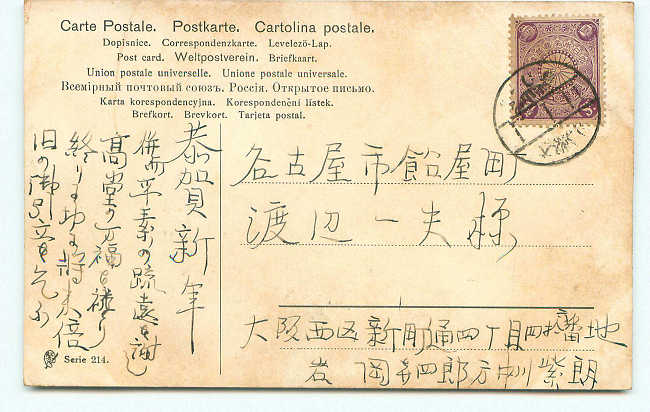 Carte Postale. Postkarte. Cartolina postale.
Dopisnice. Correspondenzkarte. Levelező-Lap.
Post card. Weltpostverein. Briefkaart.
Union postale universelle. Unione postale universale.
Всемірный почтовый союзъ. Россія. Открытое письмо.
Karta korespondencyjna. Korespondenční lístek.
Brefkort. Brevkort. Tarjeta postal.
恭賀新年
併而平素の疎遠を謝し
高堂の万福を祷り
終りに
旧の御
名古屋市飴屋町
渡辺一夫様
大阪西区新町通四丁目四 番地
岩岡 四郎方 紫朗
Serie 214.